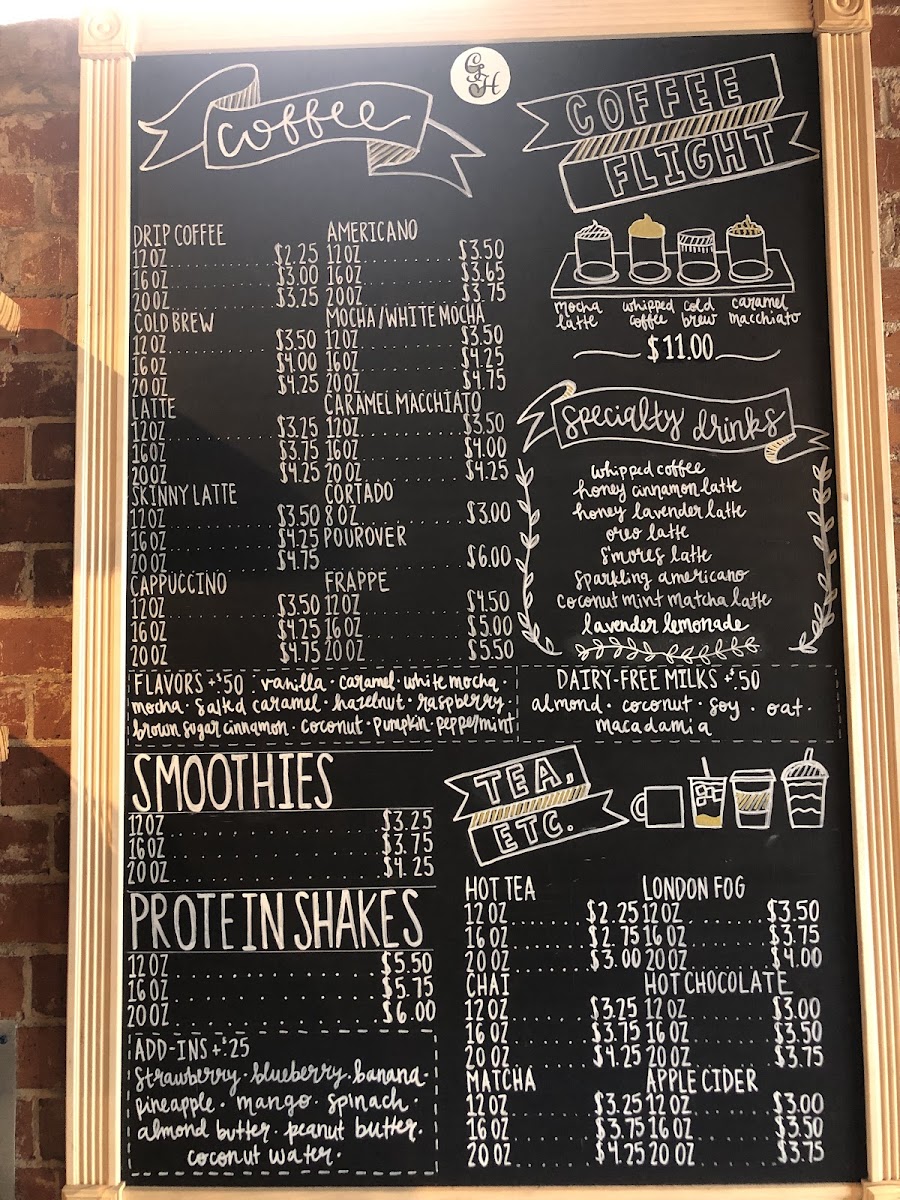 GH
coffee
DRIP COFFEE
12 OZ $2.25
16 OZ $3.00
20 OZ $3.25
COLD BREW
12 OZ $3.50
16 OZ $4.00
20 OZ $4.25
LATTE
12 OZ $3.25
16 OZ $3.75
20 OZ $4.25
SKINNY LATTE
12 OZ $3.50
16 OZ $4.25
20 OZ $4.75
CAPPUCCINO
12 OZ $3.50
16 OZ $4.25
20 OZ $4.75
AMERICANO
12 OZ $3.50
16 OZ $3.65
20 OZ $3.75
MOCHA/WHITE MOCHA
12 OZ $3.50
16 OZ $4.25
20 OZ $4.75
CARAMEL MACCHIATO
12 OZ $3.50
16 OZ $4.00
20 OZ $4.25
CORTADO
8 OZ $3.00
POUROVER
$6.00
FRAPPE
12 OZ $4.50
16 OZ $5.00
20 OZ $5.50
COFFEE
FLIGHT
mocha latte
whipped coffee
cold brew
caramel macchiato
$11.00
specialty drinks
whipped coffee
honey cinnamon latte
honey lavender latte
oreo latte
s'mores latte
sparkling americano
coconut mint matcha latte
lavender lemonade
FLAVORS +$.50 vanilla · caramel · white mocha ·
mocha · salted caramel · hazelnut · raspberry ·
brown sugar cinnamon · coconut · pumpkin · peppermint
DAIRY-FREE MILKS +$.50
almond · coconut · soy · oat ·
macadamia
SMOOTHIES
12 OZ $3.25
16 OZ $3.75
20 OZ $4.25
PROTEIN SHAKES
12 OZ $5.50
16 OZ $5.75
20 OZ $6.00
ADD-INS +$.25
strawberry · blueberry · banana ·
pineapple · mango · spinach ·
almond butter · peanut butter ·
coconut water ·
TEA,
ETC.
HOT TEA
12 OZ $2.25
16 OZ $2.75
20 OZ $3.00
CHAI
12 OZ $3.25
16 OZ $3.75
20 OZ $4.25
MATCHA
12 OZ $3.25
16 OZ $3.75
20 OZ $4.25
LONDON FOG
12 OZ $3.50
16 OZ $3.75
20 OZ $4.00
HOT CHOCOLATE
12 OZ $3.00
16 OZ $3.50
20 OZ $3.75
APPLE CIDER
12 OZ $3.00
16 OZ $3.50
20 OZ $3.75